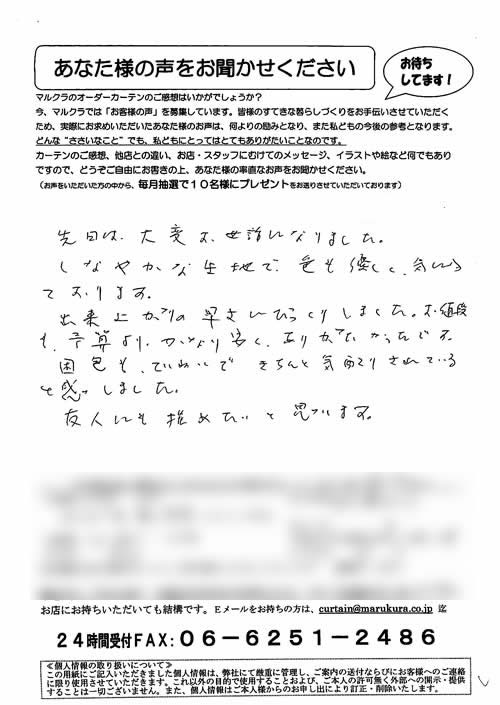 あなた様の声をお聞かせください
お待ち
してます!
マルクラのオーダーカーテンのご感想はいかがでしょうか?
今、マルクラでは「お客様の声」を募集しています。皆様のすてきな暮らしづくりをお手伝いさせていただく
ため、実際にお求めいただいたあなた様のお声は、何よりの励みとなり、また私どもの今後の参考となります。
どんな“ささいなこと”でも、私どもにとってはとてもありがたいことなのです。
カーテンのご感想、他店との違い、お店・スタッフにむけてのメッセージ、イラストや絵など何でもあり
ですので、どうぞご自由にお書きの上、あなた様の率直なお声をお聞かせください。
(お声をいただいた方の中から、毎月抽選で10名様にプレゼントをお送りさせていただいております)
先日は、大変お世話になりました。
しなやかな生地で、色も優しく、気に入っ
ております。
出来上がりの早さにびっくりしました。お値段
も、予算より、かなり安く、ありがたかったです。
困包も、ていねいで きちんと気配りされている
と感心しました。
友人にも推めたいと思います。
お店にお持ちいただいても結構です。Eメールをお持ちの方は、curtain@marukura.co.jp 迄
24時間受付FAX:06-6251-2486
≪個人情報の取り扱いについて≫
この用紙にご記入いただきました個人情報は、弊社にて厳重に管理し、ご案内の送付ならびにお客様へのご連絡
に限り使用させていただきます。これ以外の目的で使用することおよび、ご本人の許可無く外部への開示・提供
することは一切ございません。また、個人情報はご本人様からのお申し出により訂正・削除いたします。